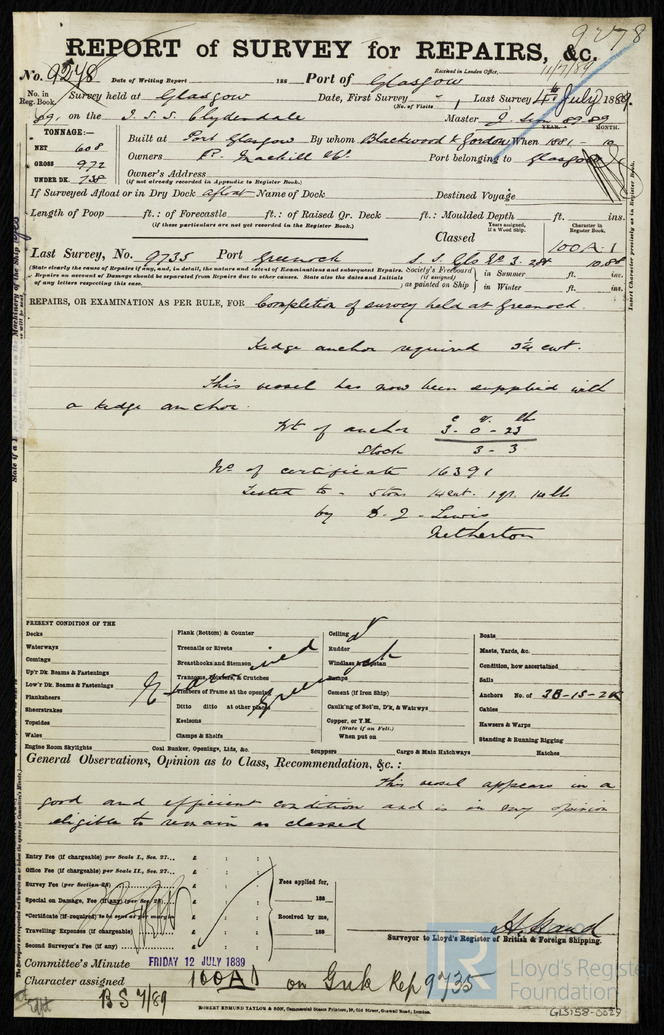 9278
REPORT of SURVEY for REPAIRS, &c.
Received in London Office, 11/7/89
No. 9278 Date of Writing Report 188 Port of Glasgow
No. in Reg. Book. Survey held at Glasgow Date, First Survey (No. of Visits) Last Survey 4th July 1889.
69, on the I. S. S. Clydesdale Master
TONNAGE:—
NET 608
GROSS 972
UNDER DK. 738
YEAR. MONTH.
Built at Port Glasgow By whom Blackwood & Gordon When 1881 - 10
Owners Port belonging to Glasgow
Owner's Address
(if not already recorded in Appendix to Register Book.)
If Surveyed Afloat or in Dry Dock afloat Name of Dock Destined Voyage
Length of Poop ft.: of Forecastle ft.: of Raised Qr. Deck ft.: Moulded Depth ft. ins.
(if these particulars are not yet recorded in the Register Book.)
Years assigned, if a Wood Ship. Character in Register Book.
Classed 100 A. 1
Last Survey, No. 9735 Port Greenock 10.88
(State clearly the cause of Repairs if any, and, in detail, the nature and extent of Examinations and subsequent Repairs.
Repairs on account of Damage should be separated from Repairs due to other causes. State also the dates and Initials
of any letters respecting this case.
Society's Freeboard (if assigned) as painted on Ship in Summer ft. ins.
in Winter ft. ins.
REPAIRS, OR EXAMINATION AS PER RULE, FOR Completion of survey held at Greenock.
Kedge anchor required 3¼ cwt.
This vessel has now been supplied with
a kedge anchor.
c q. lb
Wt of anchor 3 - 0 - 23
Stock 3 - 3
No. of certificate 16391
Tested to - 5 tons 14 cwt. 1 qr. 14 lb
by Lewis
Netherton
PRESENT CONDITION OF THE
Decks
Waterways
Comings
Up'r Dk. Beams & Fastenings
Low'r Dk. Beams & Fastenings
Planksheers
Sheerstrakes
Topsides
Wales
Engine Room Skylights
Plank (Bottom) & Counter
Treenails or Rivets
Breasthooks and Stemson
Transoms, Pointers, & Crutches
Timbers of Frame at the opening
Ditto ditto at other places
Keelsons
Clamps & Shelfs
Coal Bunker, Openings, Lids, &c.
Examined
Greenock
Ceiling
Rudder
Windlass & Capstan
Pumps
Cement (if Iron Ship)
Caulk'g of Bot'm, D'k, & Watrwys
Copper, or Y.M.
(State if on Felt.)
When put on
Scuppers
Cargo & Main Hatchways
Boats
Masts, Yards, &c.
Condition, how ascertained
Sails
Anchors No. of 3B-1S-2K
Cables
Hawsers & Warps
Standing & Running Rigging
Hatches
General Observations, Opinion as to Class, Recommendation, &c.:
This vessel appears in a
good and efficient condition and is in my opinion
eligible to remain as classed
Entry Fee (if chargeable) per Scale I., Sec. 27... £ : :
Office Fee (if chargeable) per Scale II., Sec. 27... £ : :
Survey Fee (per Section 28) £ : :
Special on Damage, Fee (if any) (per Sec. 28) £ : :
*Certificate (if required) to be sent as per margin £ : :
Travelling Expenses (if chargeable) £ : :
Second Surveyor's Fee (if any) £ : :
Fees applied for,
188
Received by me,
188
Surveyor to Lloyd's Register of British & Foreign Shipping.
Committee's Minute FRIDAY 12 JULY 1889
Character assigned 100A1 on Gnk Rep 9735
BS 7/89
ROBERT EDMUND TAYLOR & SON, Commercial Steam Printers, 19, Old Street, Goswell Road, London.
LR
Lloyd's Register
Foundation
GLS158-0029